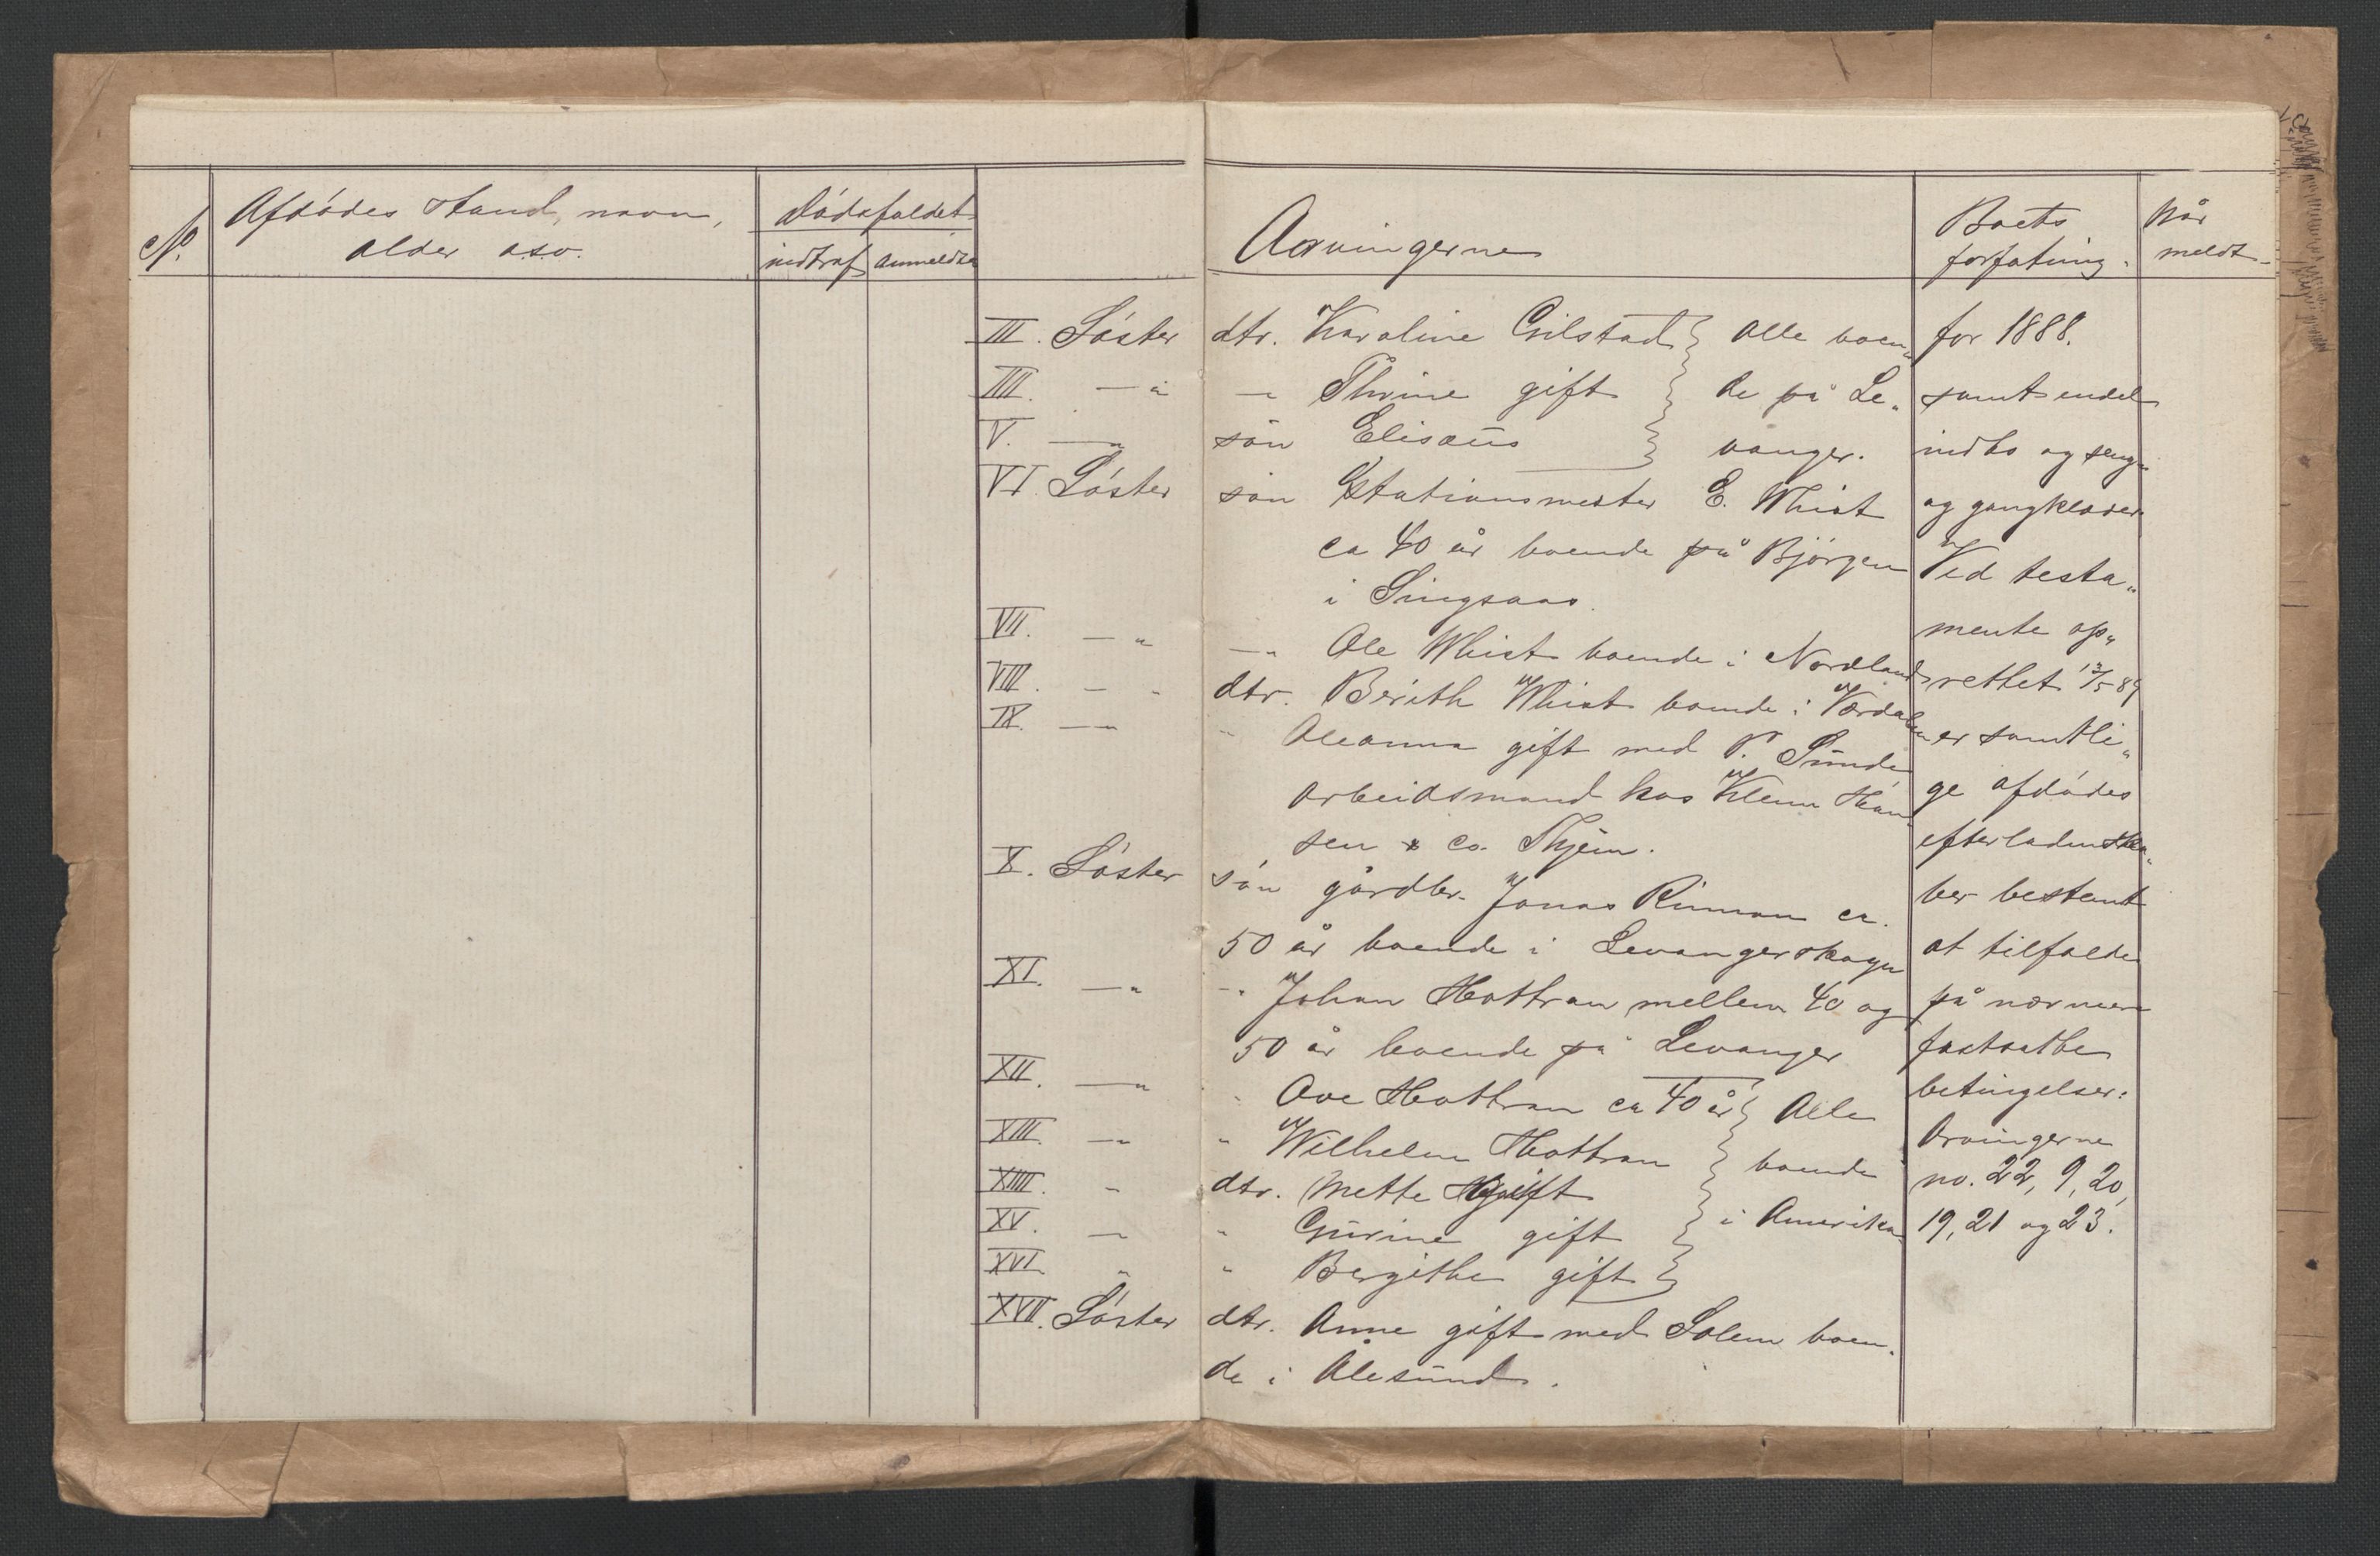 No. Afdødes stand, navn, alder o.s.v. Dødsfaldet indtraf anmeldt Arvingerne Boets forfatning. Når meldt
III. Søster dtr. Karoline Gilstad } Alle boen„
IIII. —„ —„ Thrine gift } de på Le„
V. —„ søn Elisæus } vanger.
VI Søster søn Stationsmester E. Whist
ca 40 år boende på Bjørgen
i Singsaas.
VII. —„ —„ Ole Whist boende i Nordland
VIII. —„ dtr. Berith Whist boende i Værdalen
IX. —„ „ Oleanna gift med P. Sunde
arbeidsmand hos Klem Han„
sen & co. Thjem.
X. Søster søn gårdbr. Jonas Rinnan ca.
50 år boende i Levangerskogen
XI. —„ —„ Johan Hottran mellem 40 og
50 år boende på Levanger
XII. —„ „ Ove Hottran ca 40 år } Alle
XIII. —„ „ Wilhelm Hottran } boende
XIIII. „ dtr. Mette gift } i Amerika
XV. —„ „ Gurine gift }
XVI. „ „ Bergithe gift }
XVII. Søster dtr. Anne gift med Solem boen„
de i Ålesund.
for 1888.
samt endel
indbo og senge
og gangklæder.
Ved testa„
mente op„
rettet 13/5 89
er samtli„
ge afdødes
efterladenska„
ber bestemt
at tilfalde
på nærmere
fastsatte
betingelser:
Arvingerne
no. 22, 9, 20,
19, 21 og 23.